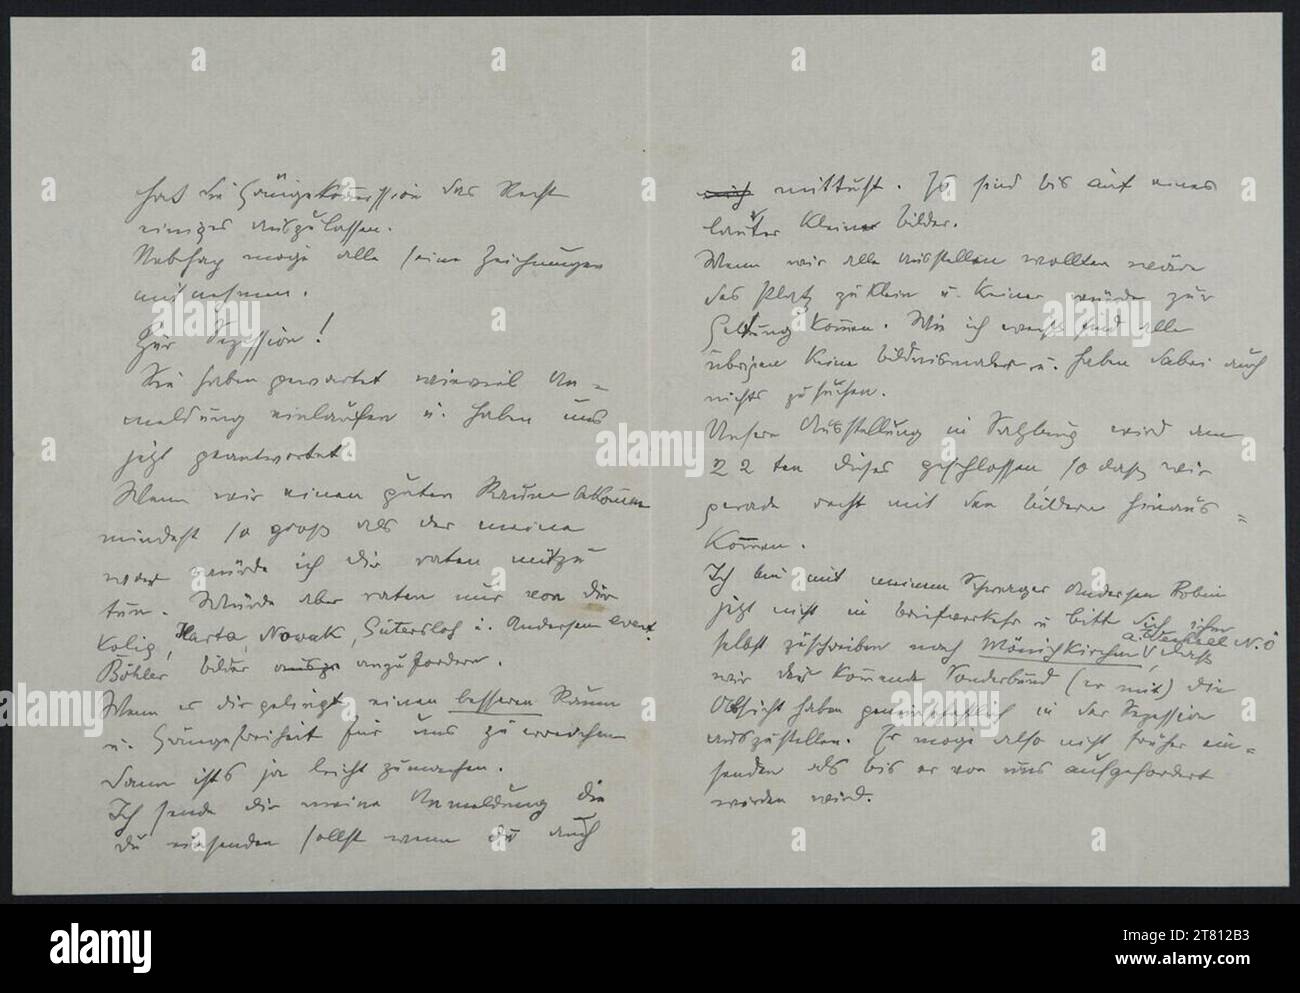 hat die Hängekommission das Recht
einiges auszulassen.
möge alle seine Zeichnungen
mitnehmen.
Zur Sezession!
Sie haben gewartet wieviel An=
meldung einlaufen u. haben uns
jetzt geantwortet.
Wenn wir einen guten Raum bekommen
mindest so groß als der meine
war würde ich dir raten mitzu
tun. Würde aber raten nur von dir
Kolig, Harta, Novak, Gütersloh u. Andersen event.
Böhler bilder anzufordern.
Wenn es dir gelingt einen besseren Raum
u. Hängefreiheit für uns zu erreichen
dann ists ja leicht zumachen.
Ich sende dir meine Anmeldung die
du einsenden sollst wenn du auch
mich mittust. Es sind bis auf eines
lauter kleine bilder.
Wenn wir alle ausstellen wollten wäre
das Platz zu klein u. keiner würde zur
Geltung kommen. Wie ich weiß sind alle
übrigen keine bildnismaler u. haben dabei auch
nichts zu suchen.
Unsere Ausstellung in Salzburg wird am
22ten dieses geschlossen so daß wir
gerade recht mit den bildern hinaus=
kommen.
Ich bin mit meinem Schwager Andersen Robin
jetzt nicht in briefverkehr u bitte dich ihm
selbst zuschreiben nach Mönichkirchen a. Wechsel N.Ö, daß
wir der kommende Sonderbund (er mit) die
Absicht haben gemeinschaftlich in der Sezession
auszustellen. Er möge also nicht früher ein=
senden als bis er von uns aufgefordert
worden wird.
alamy
Image ID: 2T812B3
www.alamy.com